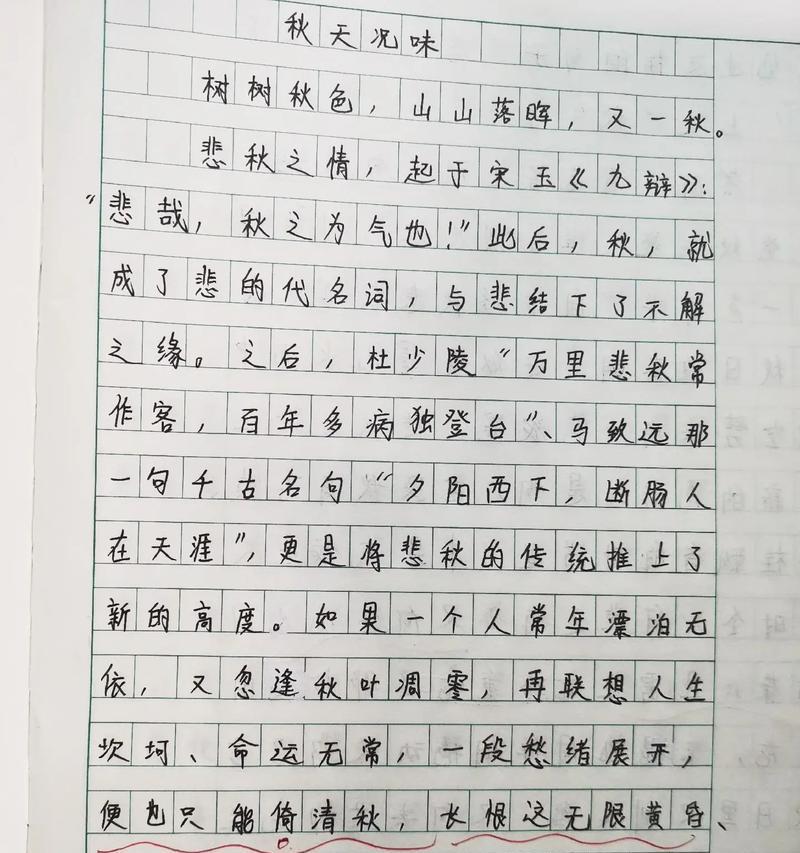 秋天况味
树树秋色，山山落晖，又一秋。
悲秋之情，起于宋玉《九辩》：
“悲哉，秋之为气也！”此后，秋，就
成了悲的代名词，与悲结下了不解
之缘。之后，杜少陵“万里悲秋常
作客，百年多病独登台”、马致远那
一句千古名句“夕阳西下，断肠人
在天涯”，更是将悲秋的传统推上了
新的高度。如果一个人常年漂泊无
依，又忽逢秋叶凋零，再联想人生
坎坷、命运无常，一段愁绪展开，
便也只能倚清秋，长恨这无限黄昏、